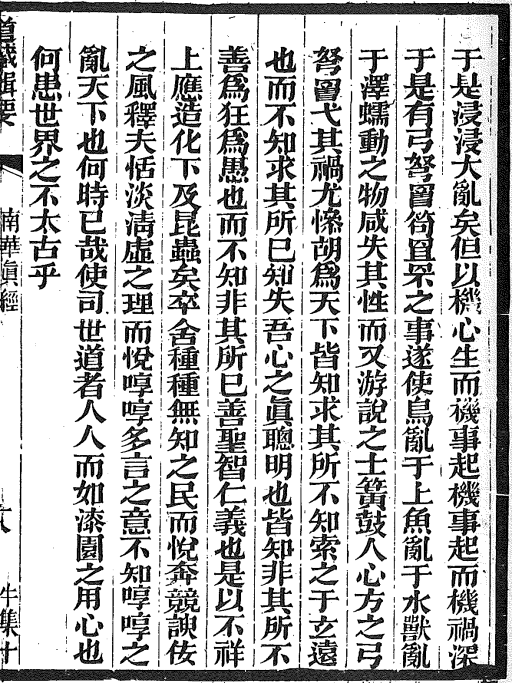 于是浸浸大亂矣但以機心生而機事起機事起而機禍深
于是有弓弩罾笱罝罘之事遂使鳥亂于上魚亂于水獸亂
于澤蠕動之物咸失其性而又游說之士簧鼓人心方之弓
弩罾弋其禍尤慘胡為天下皆知求其所不知索之于玄遠
也而不知求其所已知失吾心之眞聰明也皆知非其所不
善為狂為愚也而不知非其所已善聖智仁義也是以不祥
上應造化下及昆蟲矣卒舍種種無知之民而悅奔競諛佞
之風釋夫恬淡淸虛之理而悅啍啍多言之意不知啍啍之
亂天下也何時已哉使司世道者人人而如漆園之用心也
何患世界之不太古乎
道藏輯要
南華眞經
牛集十